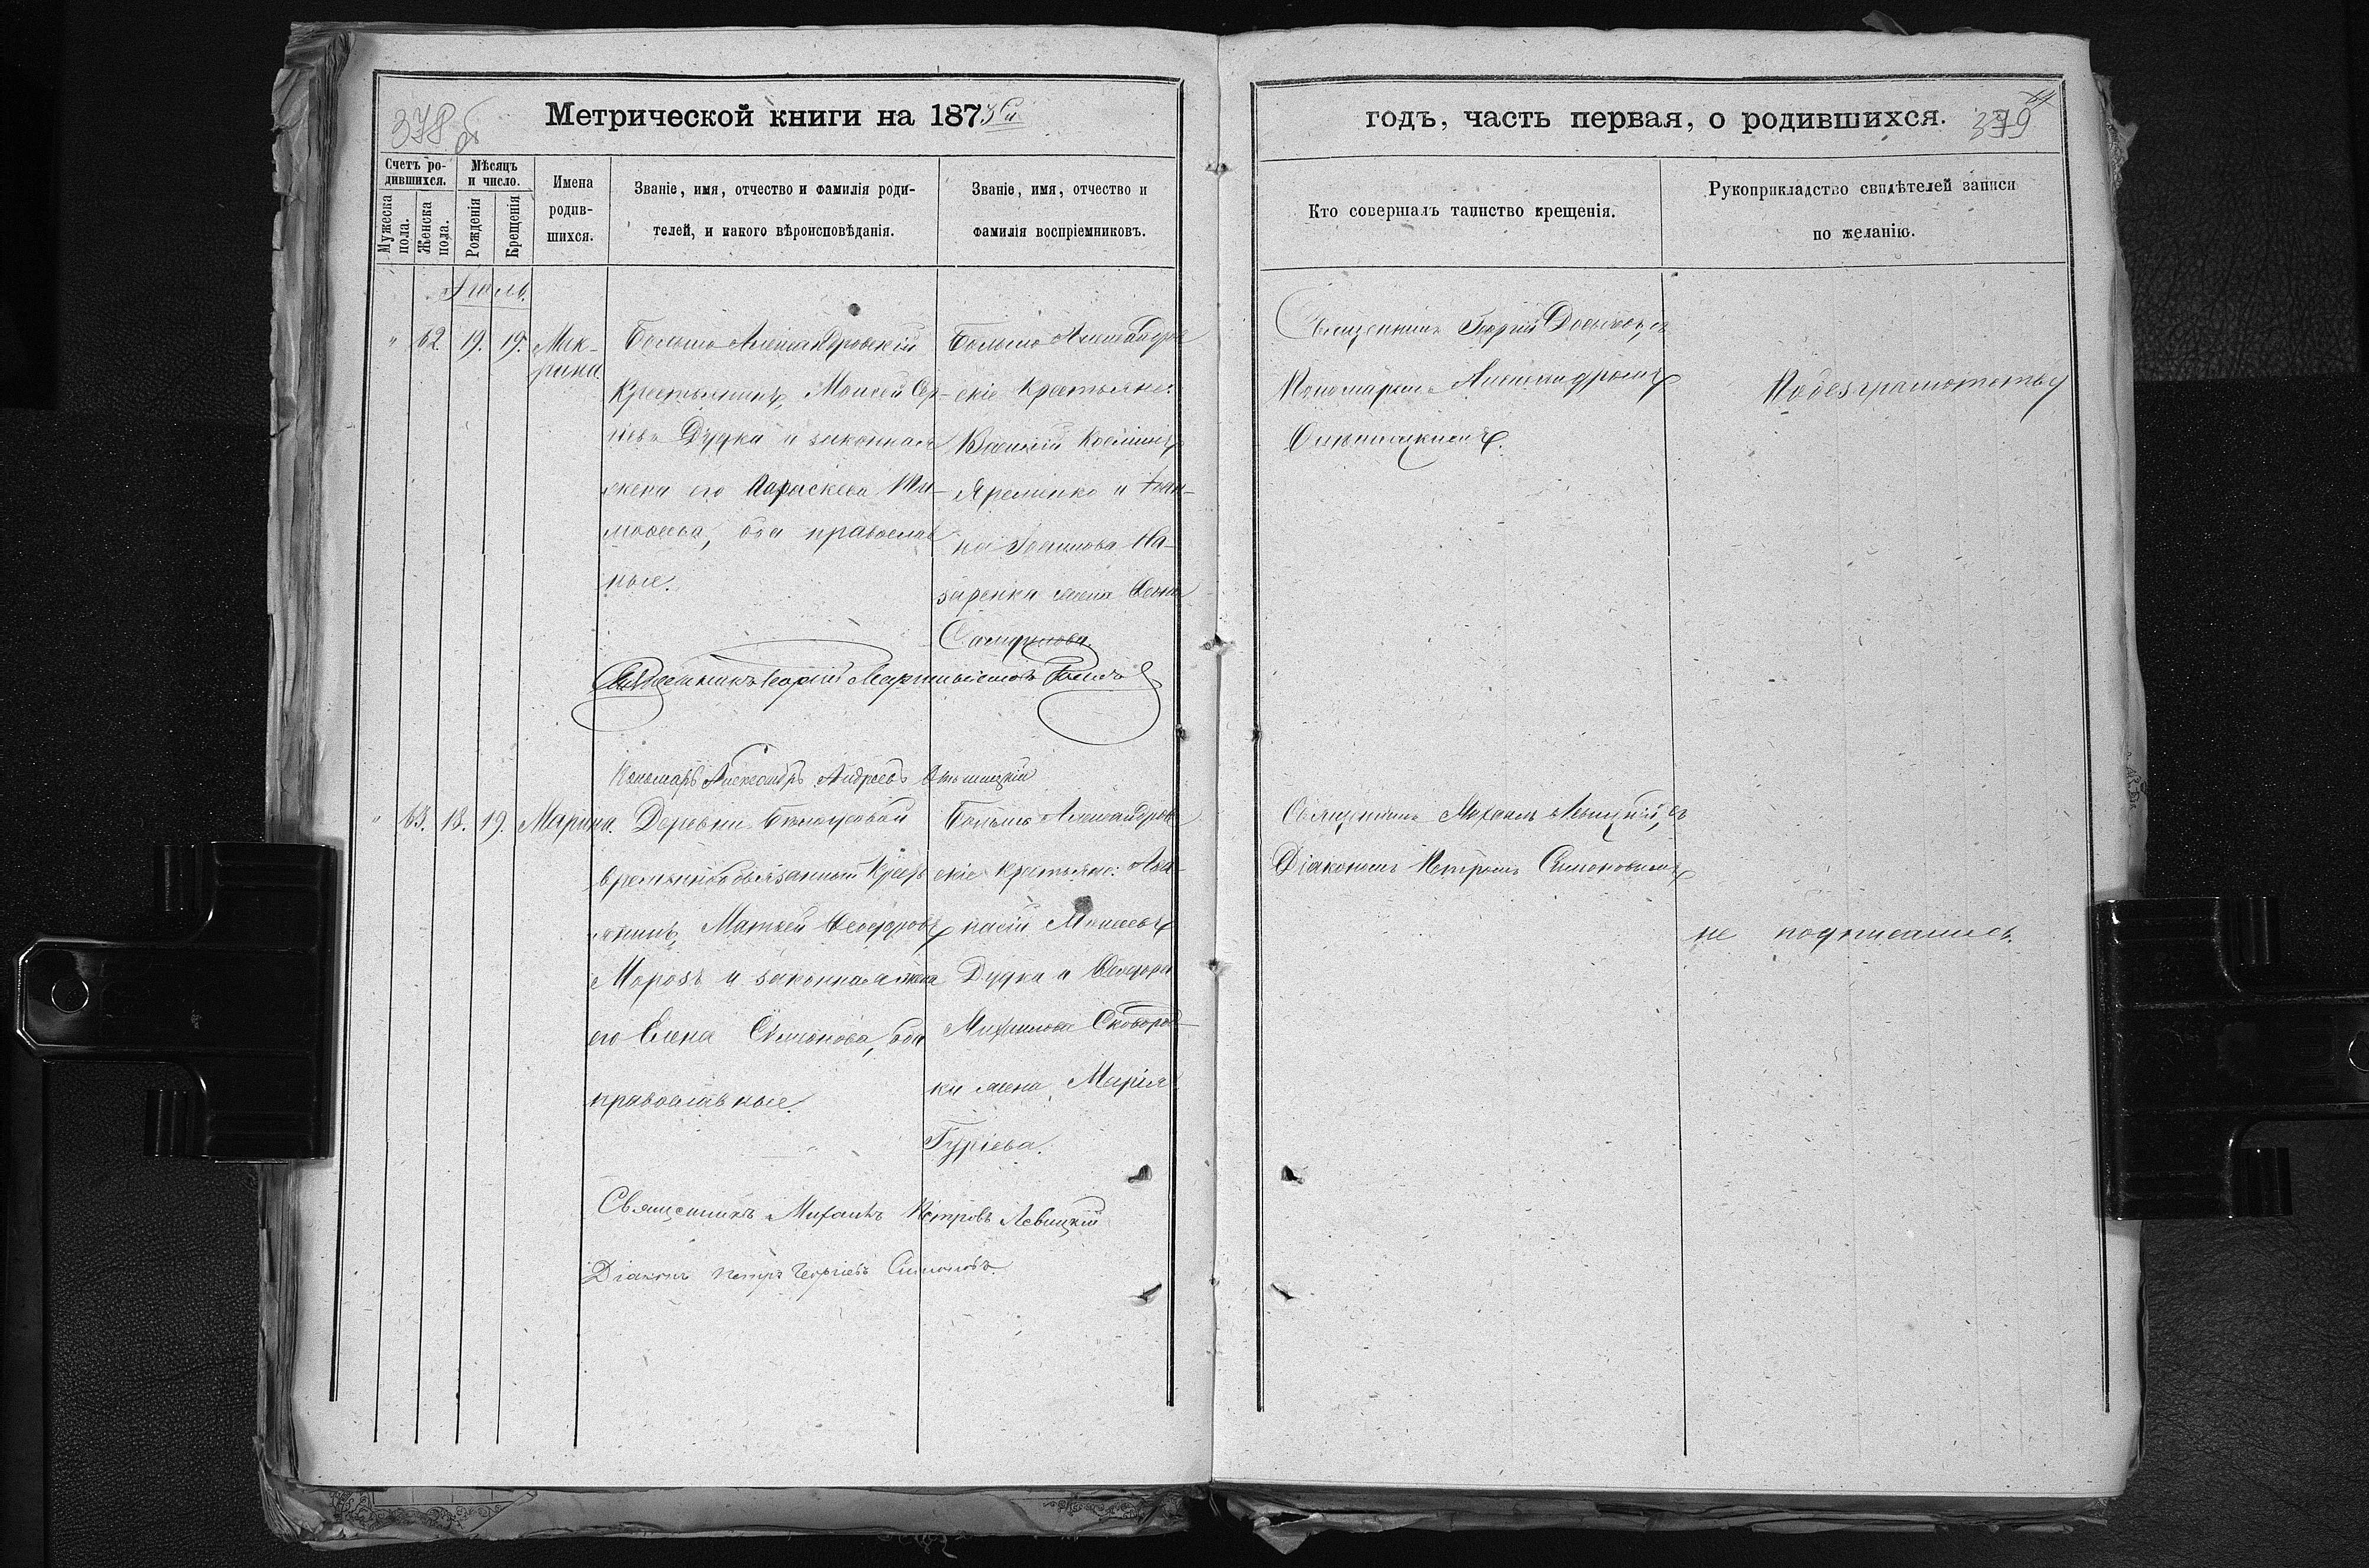 378 об
Метрической книги на 1873й
годъ, часть первая, о родившихся.
379
Счетъ ро-
дившихся.
Мѣсяцъ
и число.
Мужеска
пола.
Женска
пола.
Рожденія
Крещенія
Имена
родив-
шихся.
Званіе, имя, отчество и фамилія роди-
телей, и какого вѣроисповѣданія.
Званіе, имя, отчество и
фамилія воспріемниковъ.
Кто совершалъ таинство крещенія.
Рукоприкладство свидѣтелей записи
по желанію.
Іюль.
" 62. 19. 19. Мак-
рина.
Больше Александровскій
Крестьянинъ, Моисей
Дудка и законная
жена его Параскева Ти-
моѳеева, оба православ
ные.
Больше Александров
скіе крестьяне:
Василій
Яременко и
На-
заренка жена
Священникъ Георгій
Пономаремъ Александромъ
По безграмотству
Священникъ Георгій
Пономарь Александръ Андреевъ
" 63. 18. 19. Марина.
Деревни Бѣлоусовой
временнообязанный Крестъ
янинъ, Матвей Ѳеодоровъ
Морозъ и законная жена
его Елена Симонова, оба
православные.
Больше Александров
скіе крестьяне: Аѳа-
насій Моисеевъ
Дудка и Ѳеодора
Михайлова Сковород
ки жена Марія
Гуріева.
Священникъ Михаилъ Левицкій, съ
Діакономъ Петромъ Симоновымъ
не подписались.
Священникъ Михаилъ Петровъ Левицкій
Діаконъ Петръ Георгіевъ Симоновъ.